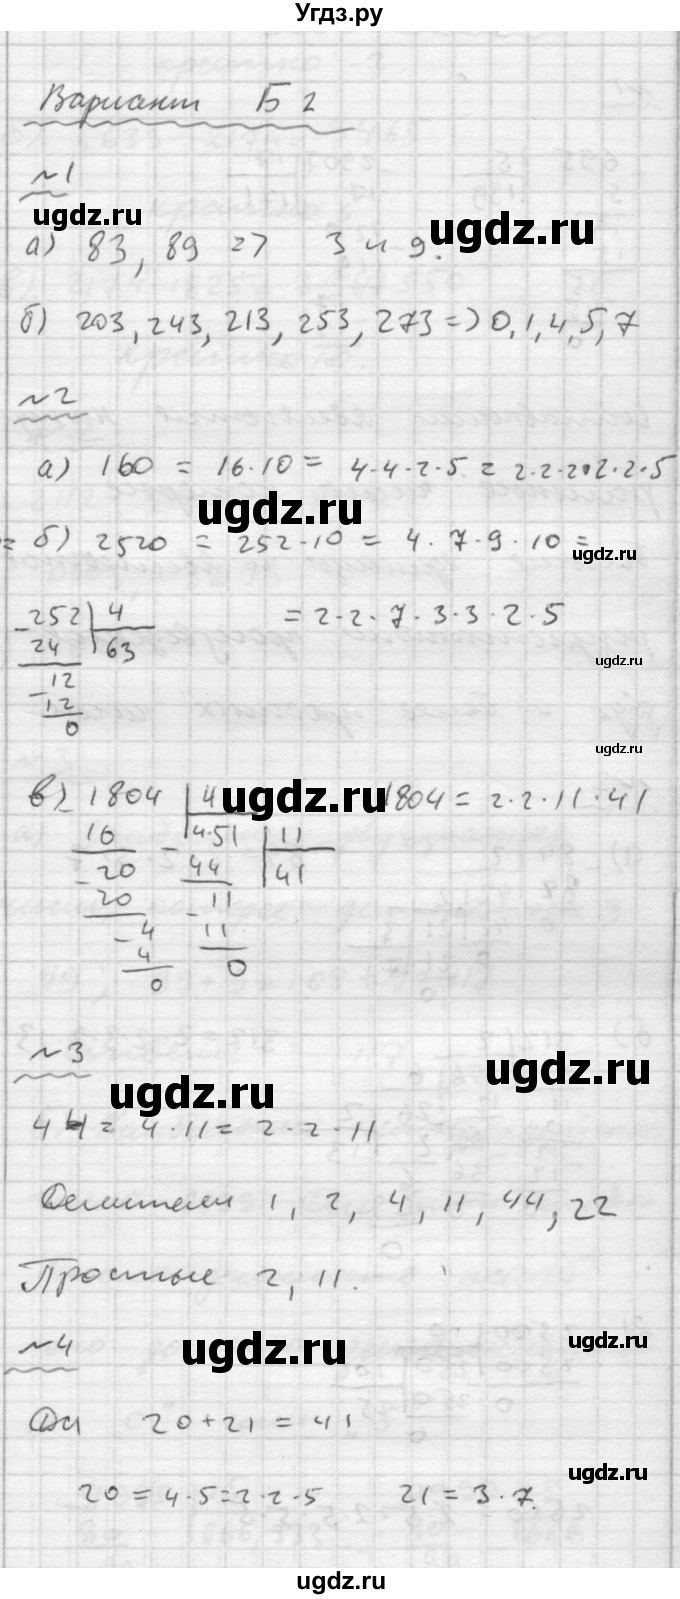 Угдз.ру
Вариант Б2
№1
ugdz.ru ugdz.ru
а) 83, 89 => 3 и 9.
б) 203, 243, 213, 253, 273 => 0, 1, 4, 5, 7
№2
а) 160 = 16·10 = 4·4·2·5 = 2·2·2·2·2·5
ugdz.ru
б) 2520 = 252·10 = 4·7·9·10 =
ugdz.ru
= 2·2·7·3·3·2·5
252 | 4
24 63
12
12
0
ugdz.ru
ugdz.ru
в) 1804 | 4 1804 = 2·2·11·41
ugdz.ru
16 451 | 11
20 44 41
20 11
4 11
4 0
0
№3
ugdz.ru ugdz.ru
44 = 4·11 = 2·2·11
Делители 1, 2, 4, 11, 44, 22
Простые 2, 11.
№4
ugdz.ru ugdz.ru
Да 20+21 = 41
ugdz.ru
20 = 4·5 = 2·2·5 21 = 3·7.
ugdz.ru